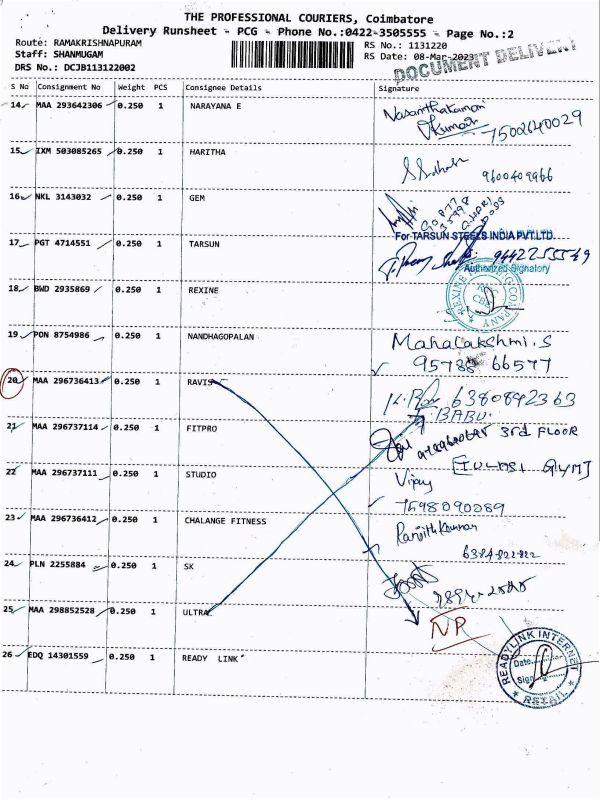 THE PROFESSIONAL COURIERS, Coimbatore
Delivery Runsheet - PCG - Phone No.:0422-3505555 - Page No.:2
Route: RAMAKRISHNAPURAM
Staff: SHANMUGAM
DRS No.: DCJB113122002
RS No.: 1131220
RS Date: 08-Mar-2023
DOCUMENT DELIVERY
S No Consignment No Weight PCS Consignee Details Signature
14 MAA 293642306 0.250 1 NARAYANA E Vasanthakumari
Kumar 7502640029
15 IXM 503085265 0.250 1 HARITHA 9600409966
16 NKL 3143032 0.250 1 GEM
For TARSUN STEELS INDIA PVT.LTD.
17 PGT 4714551 0.250 1 TARSUN
Authorized Signatory
18 BWD 2935869 0.250 1 REXINE
19 PON 8754986 0.250 1 NANDHAGOPALAN Mahalakshmi.S
95788 66577
20 MAA 296736413 0.250 1 RAVIS 6380892363
BABU
21 MAA 296737114 0.250 1 FITPRO 3rd FLOOR
22 MAA 296737111 0.250 1 STUDIO Vijay
7598090089
23 MAA 296736412 0.250 1 CHALANGE FITNESS Ranjithkumar
6384822822
24 PLN 2255884 0.250 1 SK
25 MAA 298852528 0.250 1 ULTRA NP
26 EDQ 14301559 0.250 1 READY LINK
READYLINK INTERNET
Date
Sign
RETAIL